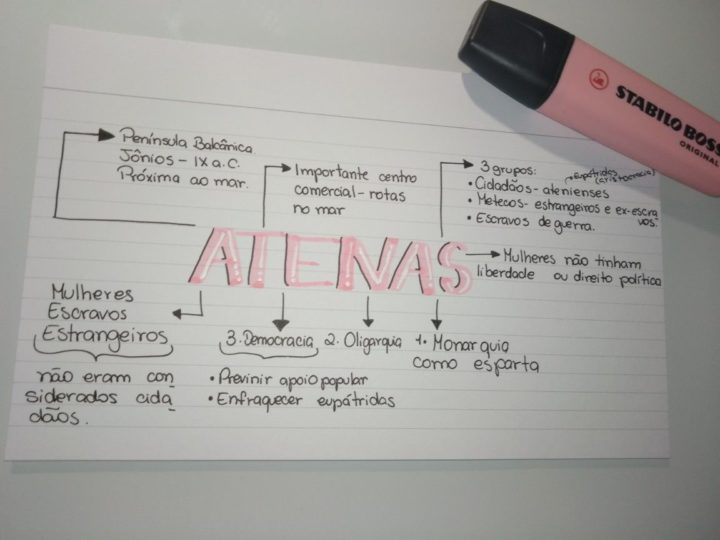 STABILO BOSS
ORIGINAL
Península Balcânica
Jônios - IX a.C.
Próxima ao mar.
Importante centro
comercial - rotas
no mar
3 grupos:
Eupátridas
(aristocracia)
• Cidadãos - atenienses
• Metecos - estrangeiros e ex-escra
vos.
• Escravos de guerra.
ATENAS
Mulheres não tinham
liberdade ou direito política
Mulheres
Escravos
Estrangeiros
não eram con
siderados cida
dãos.
3. Democracia
• Previnir apoio popular
• Enfraquecer eupátridas
2. Oligarquia
1. Monarquia
como esparta